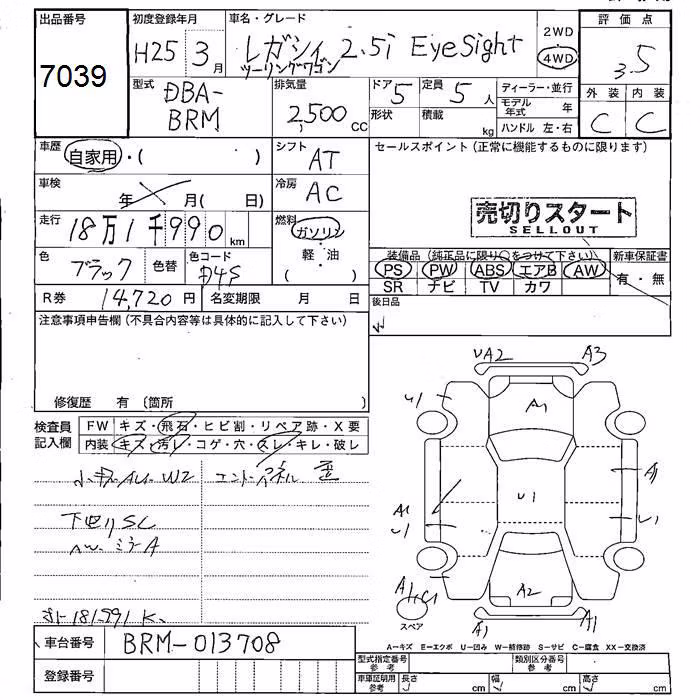 出品番号
7039
初度登録年月
H25 3 月
車名・グレード
レガシィ 2.5i EyeSight
ツーリングワゴン
2WD
4WD
評価点
3.5
外装 内装
C C
型式
DBA-
BRM
排気量
2,500 CC
ドア 5
形状
定員 5 人
積載 kg
ディーラー・並行
モデル年式 年
ハンドル 左・右
車歴
自家用・( )
シフト
AT
セールスポイント(正常に機能するものに限ります)
車検
年 月( 日)
冷房
AC
売切りスタート
SELLOUT
走行
18万1千990 km
燃料
ガソリン
軽・油
( )
色
ブラック
色替
色コード
D4S
装備品(純正品に限り○をつけて下さい)
PS PW ABS エアB AW
SR ナビ TV カワ
新車保証書
有・無
R券 14,720 円
名変期限 月 日
後日品
注意事項申告欄(不具合内容等は具体的に記入して下さい)
修復歴 有(箇所 )
検査員
記入欄
FW キズ・飛石・ヒビ割・リペア跡・X要
内装 キズ・汚レ・コゲ・穴・スレ・キレ・破レ
W2
エンドパネル 歪
下回りSC
AW
A
181,991 K
UA2 A3
U1
A1
U1
A1
A1
U1
U1
A2
A1
A1
スペア
A-キズ E-エクボ U-凹み W-補修跡 S-サビ C-腐食 XX-交換済
車台番号
BRM-013708
登録番号
型式指定番号
参考
類別区分番号
参考
車庫証明用
参考
長さ cm
幅 cm
高さ cm